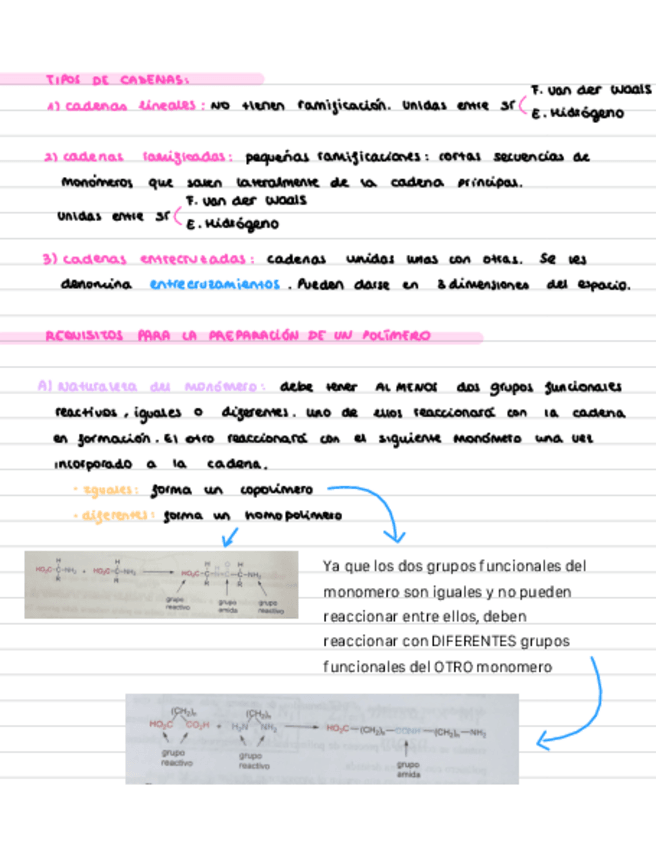 TIPOS DE CADENAS:
1) cadenas lineales: NO tienen ramificación. Unidas entre sí ( F. van der Waals
E. Hidrógeno
2) cadenas ramificadas: pequeñas ramificaciones: cortas secuencias de
monómeros que salen lateralmente de la cadena principal.
unidas entre sí ( F. van der Waals
E. Hidrógeno
3) cadenas entrecruzadas: cadenas unidas unas con otras. Se les
denomina entrecruzamientos. Pueden darse en 3 dimensiones del espacio.
REQUISITOS PARA LA PREPARACIÓN DE UN POLÍMERO
A) Naturaleza del monómero: debe tener AL MENOS dos grupos funcionales
reactivos, iguales o diferentes. Uno de ellos reaccionará con la cadena
en formación. El otro reaccionará con el siguiente monómero una vez
incorporado a la cadena.
- iguales: forma un copolímero
- diferentes: forma un homopolímero
Ya que los dos grupos funcionales del
monomero son iguales y no pueden
reaccionar entre ellos, deben
reaccionar con DIFERENTES grupos
funcionales del OTRO monomero
grupo reactivo
grupo amida
grupo reactivo
(CH₂)ₙ (CH₂)ₙ
HO₂C CO₂H + H₂N NH₂ → HO₂C—(CH₂)ₙ—CONH—(CH₂)ₙ—NH₂
grupo reactivo
grupo reactivo
grupo amida